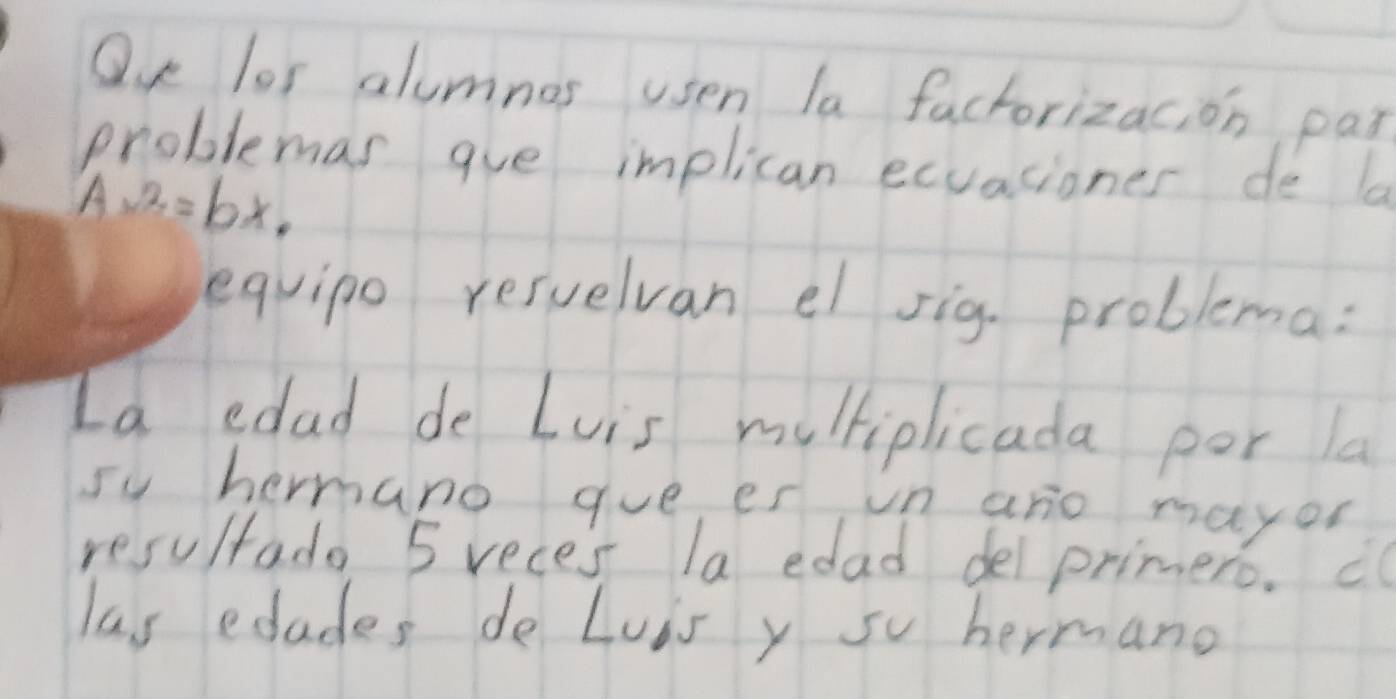 Que los alumnos usen la factorización par
problemas que implican ecuaciones de la
Ax²=bx.
equipo resuelvan el sig. problema:
La edad de Luis multiplicada por la
su hermano que es un año mayor
resultado 5 veces la edad del primero.
las edades de Luis y su hermano